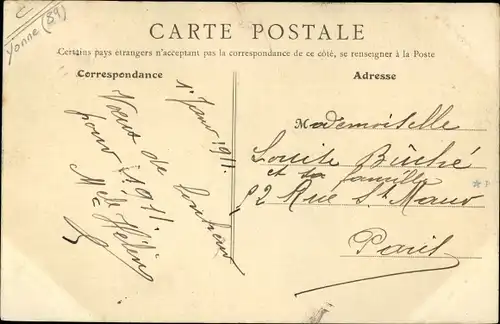 Yonne (89)
CARTE POSTALE
Certains pays étrangers n'acceptant pas la correspondance de ce côté, se renseigner à la Poste
Correspondance
Adresse
1er Janv 1911.
Vœux de bonheur
pour 1911.
Hélène
Mademoiselle
Louise Bûché
et sa famille
52 Rue St Maur
Paris